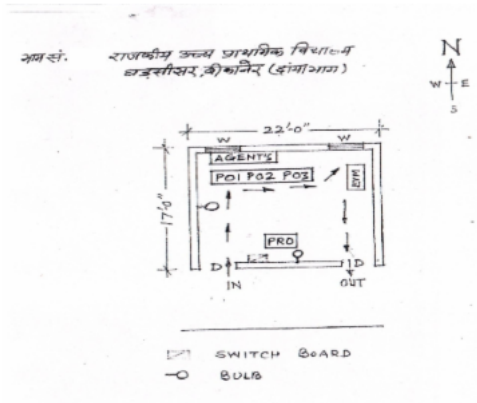 भाग सं. राजकीय उच्च प्राथमिक विद्यालय
घड़सीसर, बीकानेर (दांया भाग)
N
W E
S
22'-0"
W W
AGENT'S
PO1 PO2 PO3
EVM
17'-0"
PRO
D D
IN OUT
SWITCH BOARD
BULB